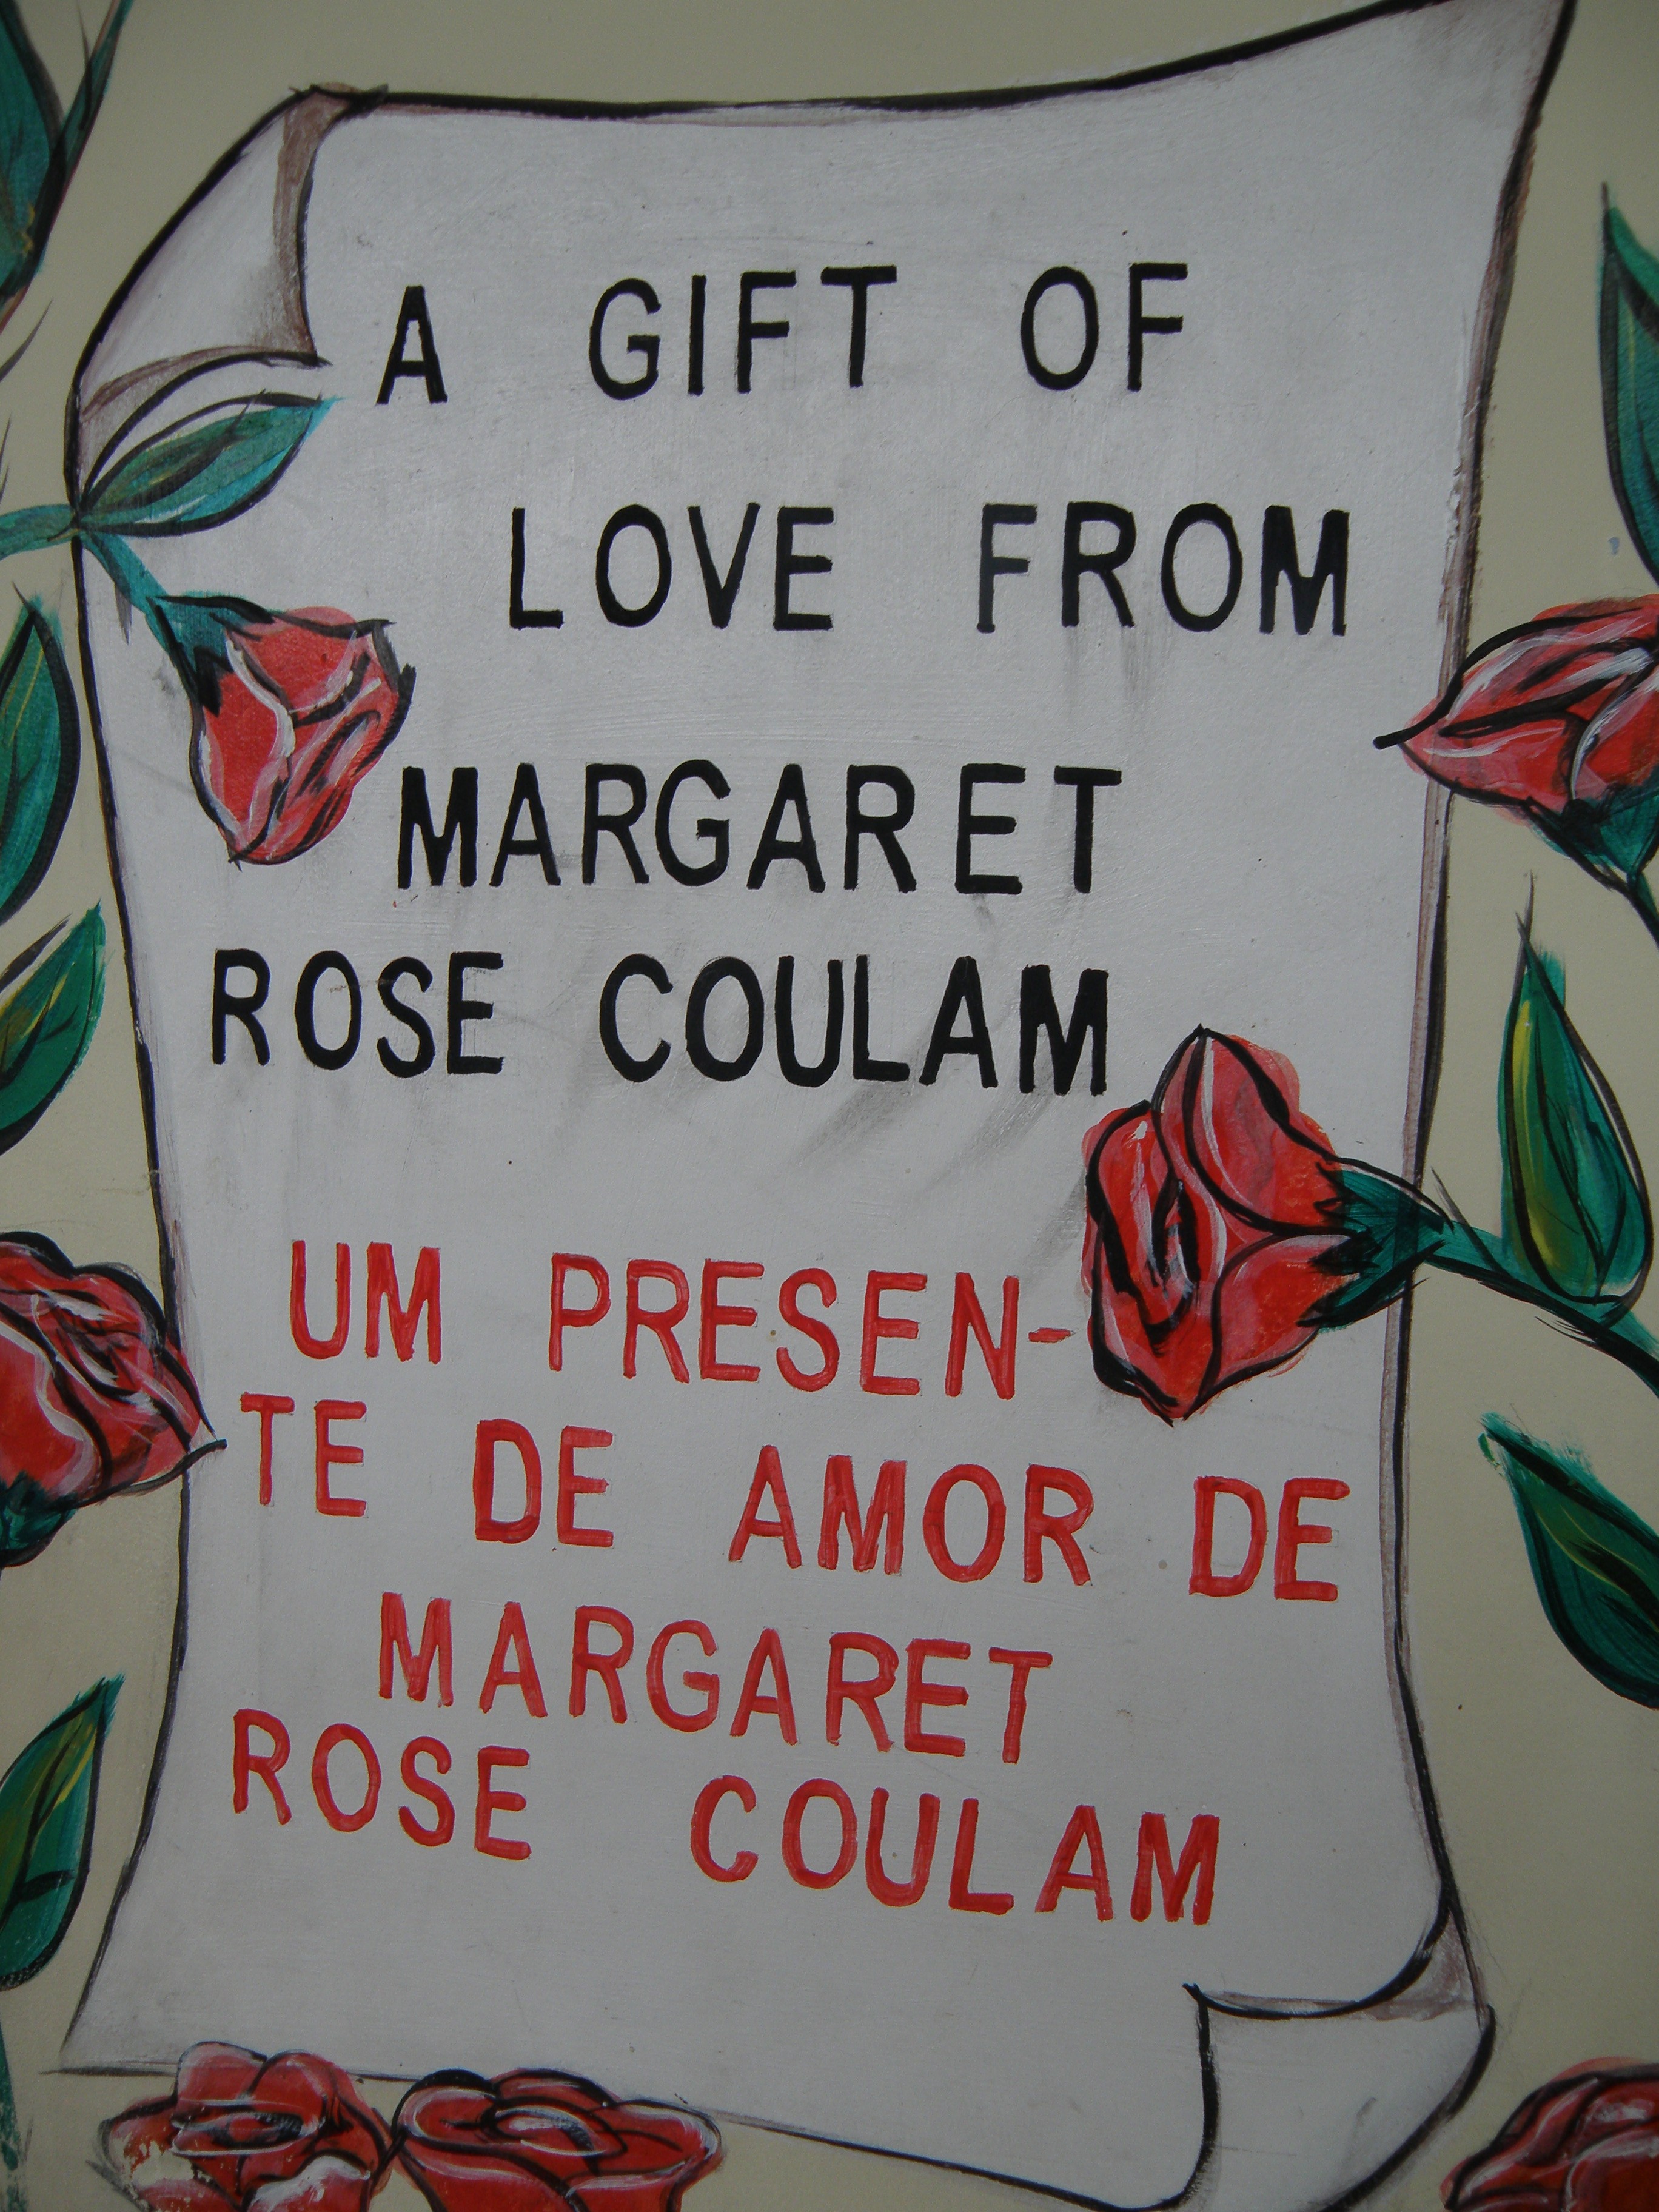 A GIFT OF
LOVE FROM
MARGARET
ROSE COULAM
UM PRESEN-
TE DE AMOR DE
MARGARET
ROSE COULAM